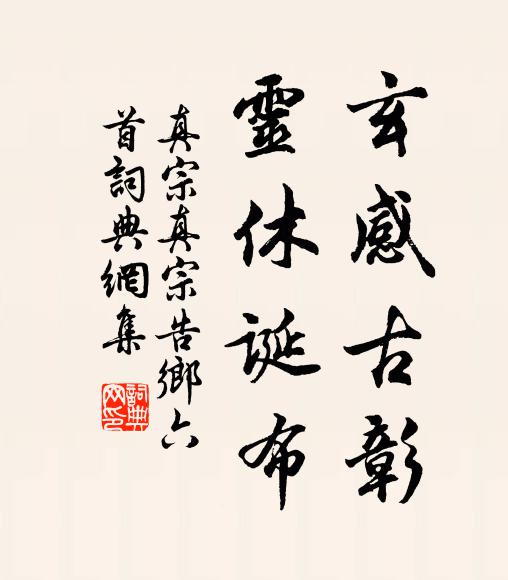 玄感古彰
靈休誕布
真宗真宗告鄉六
首詞典網集
詞典
网印